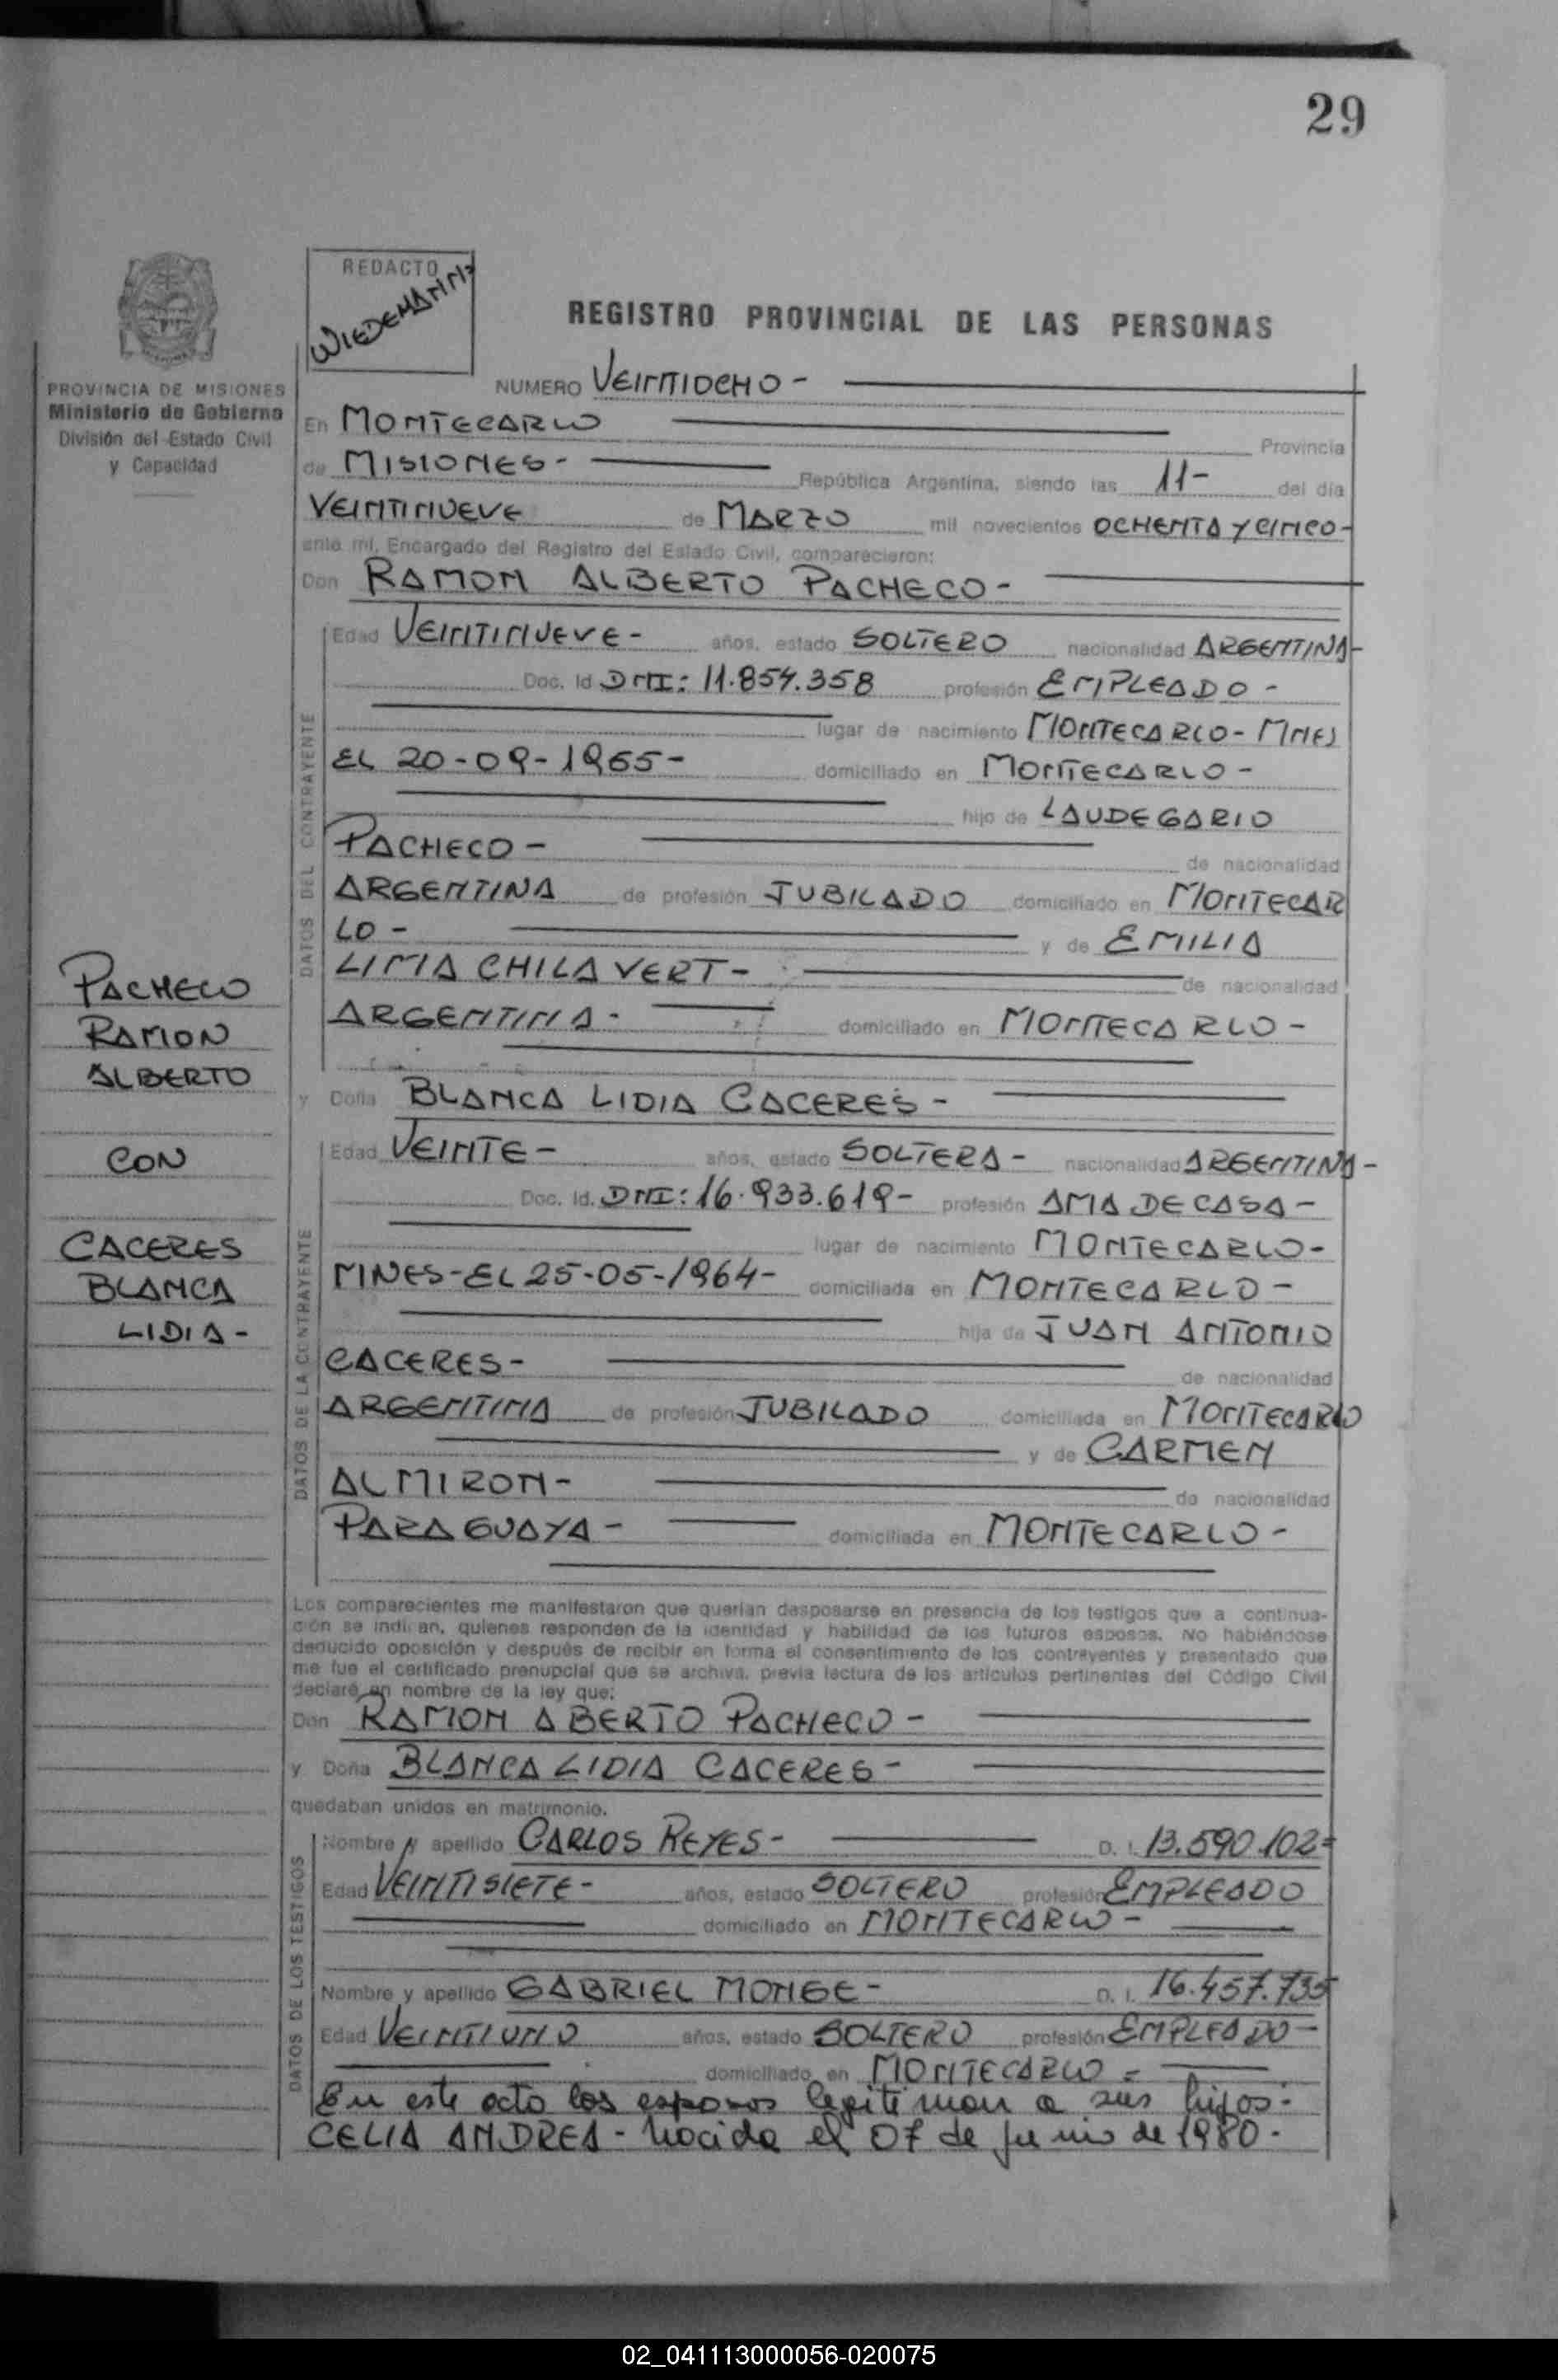 29
REDACTO
WIEDEMANN
REGISTRO PROVINCIAL DE LAS PERSONAS
PROVINCIA DE MISIONES
Ministerio de Gobierno
División del Estado Civil
y Capacidad
NUMERO VEINTIOCHO -
En MONTECARLO
Provincia
de MISIONES - República Argentina, siendo las 11 - del día
VEINTINUEVE de MARZO mil novecientos OCHENTA Y CINCO -
ante mí, Encargado del Registro del Estado Civil, comparecieron:
Don RAMON ALBERTO PACHECO -
DATOS DEL CONTRAYENTE
Edad VEINTINUEVE - años, estado SOLTERO nacionalidad ARGENTINA -
Doc. Id DNI: 11.854.358 profesión EMPLEADO -
lugar de nacimiento MONTECARLO - MNES
EL 20-09-1955 - domiciliado en MONTECARLO -
hijo de LAUDEGARIO
PACHECO - de nacionalidad
ARGENTINA de profesión JUBILADO domiciliado en MONTECAR
LO - y de EMILIA
LIMA CHILAVERT - de nacionalidad
ARGENTINA - domiciliado en MONTECARLO -
PACHECO
RAMON
ALBERTO
CON
CACERES
BLANCA
LIDIA -
y Doña BLANCA LIDIA CACERES -
DATOS DE LA CONTRAYENTE
Edad VEINTE - años, estado SOLTERA - nacionalidad ARGENTINA -
Doc. Id. DNI: 16.933.619 - profesión AMA DE CASA -
lugar de nacimiento MONTECARLO -
MNES - EL 25-05-1964 - domiciliada en MONTECARLO -
hija de JUAN ANTONIO
CACERES - de nacionalidad
ARGENTINA de profesión JUBILADO domiciliada en MONTECARLO
y de CARMEN
ALMIRON - de nacionalidad
PARAGUAYA - domiciliada en MONTECARLO -
Los comparecientes me manifestaron que querían desposarse en presencia de los testigos que a continua-
ción se indican, quienes responden de la identidad y habilidad de los futuros esposos. No habiéndose
deducido oposición y después de recibir en forma el consentimiento de los contrayentes y presentado que
me fue el certificado prenupcial que se archiva, previa lectura de los artículos pertinentes del Código Civil
declaré en nombre de la ley que:
Don RAMON ABERTO PACHECO -
y Doña BLANCA LIDIA CACERES -
quedaban unidos en matrimonio.
DATOS DE LOS TESTIGOS
Nombre y apellido CARLOS REYES - D. I. 13.590.102 =
Edad VEINTISIETE - años, estado SOLTERO profesión EMPLEADO
domiciliado en MONTECARLO -
Nombre y apellido GABRIEL MONGE - D. I. 16.457.735
Edad VEINTIUNO años, estado SOLTERO profesión EMPLEADO -
domiciliado en MONTECARLO -
En este acto los esposos legitiman a sus hijos:
CELIA ANDREA - nacida el 07 de junio de 1980 -
02_041113000056-020075